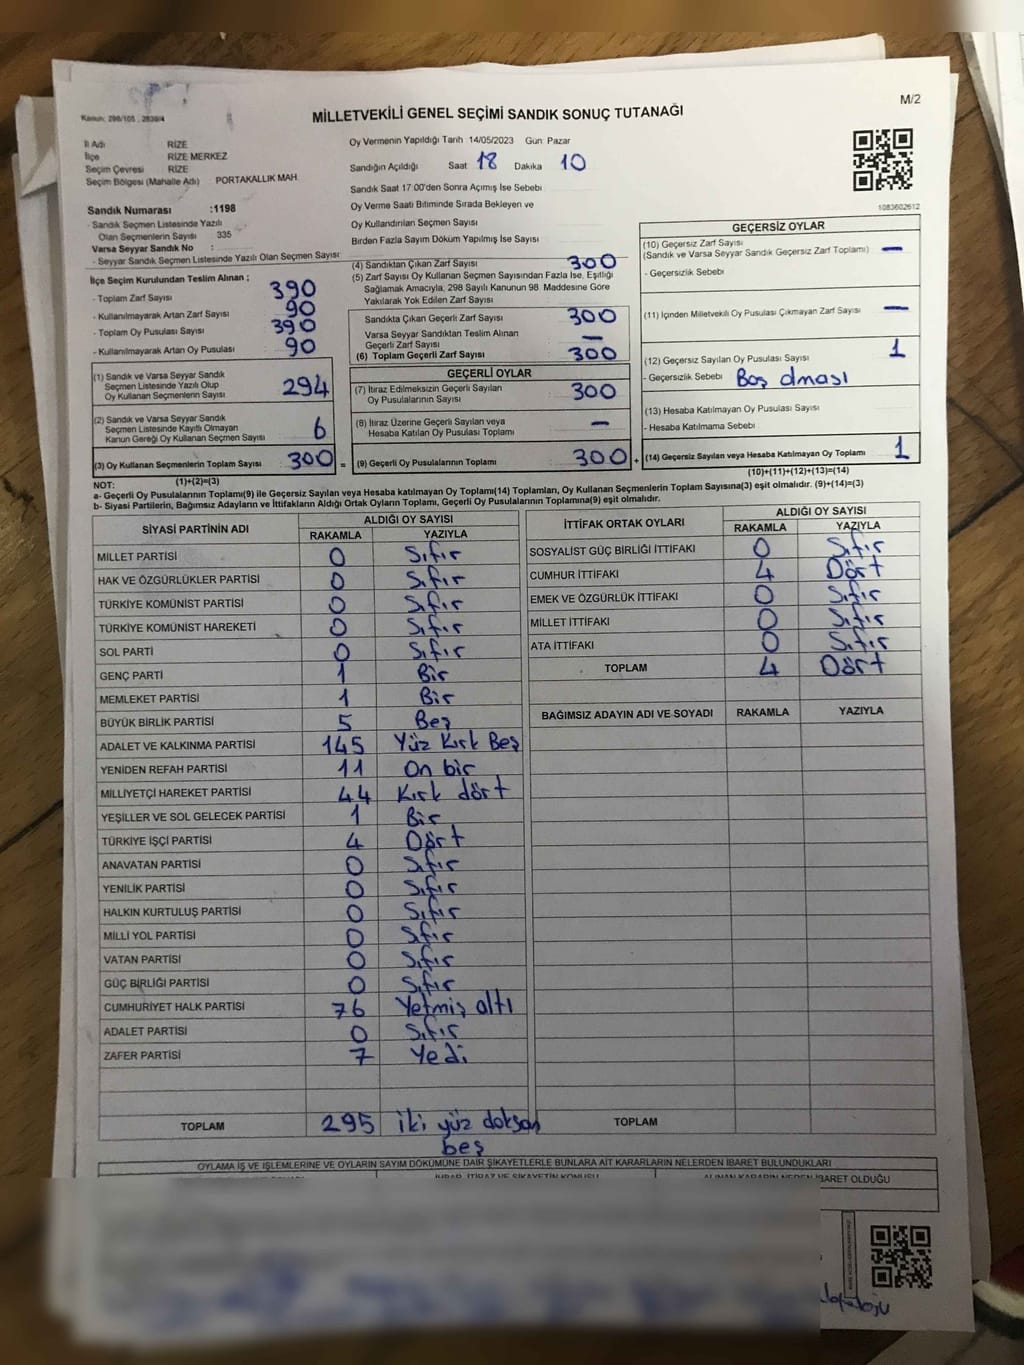 M/2
Kanun: 298/105 , 2839/4
MİLLETVEKİLİ GENEL SEÇİMİ SANDIK SONUÇ TUTANAĞI
İl Adı RİZE
İlçe RİZE MERKEZ
Seçim Çevresi RİZE
Seçim Bölgesi (Mahalle Adı) PORTAKALLIK MAH.
Oy Vermenin Yapıldığı Tarih 14/05/2023 Gün: Pazar
Sandığın Açıldığı Saat 18 Dakika 10
Sandık Saat 17:00'den Sonra Açımış İse Sebebi
Oy Verme Saati Bitiminde Sırada Bekleyen ve
Oy Kullandırılan Seçmen Sayısı
Birden Fazla Sayım Döküm Yapılmış İse Sayısı
1083602612
Sandık Numarası :1198
- Sandık Seçmen Listesinde Yazılı
Olan Seçmenlerin Sayısı 335
Varsa Seyyar Sandık No :
- Seyyar Sandık Seçmen Listesinde Yazılı Olan Seçmen Sayısı
İlçe Seçim Kurulundan Teslim Alınan ;
- Toplam Zarf Sayısı 390
- Kullanılmayarak Artan Zarf Sayısı 90
- Toplam Oy Pusulası Sayısı 390
- Kullanılmayarak Artan Oy Pusulası 90
(1) Sandık ve Varsa Seyyar Sandık
Seçmen Listesinde Yazılı Olup
Oy Kullanan Seçmenlerin Sayısı 294
(2) Sandık ve Varsa Seyyar Sandık
Seçmen Listesinde Kayıtlı Olmayan
Kanun Gereği Oy Kullanan Seçmen Sayısı 6
(3) Oy Kullanan Seçmenlerin Toplam Sayısı 300 =
(1)+(2)=(3)
(4) Sandıktan Çıkan Zarf Sayısı 300
(5) Zarf Sayısı Oy Kullanan Seçmen Sayısından Fazla İse, Eşitliği
Sağlamak Amacıyla, 298 Sayılı Kanunun 98. Maddesine Göre
Yakılarak Yok Edilen Zarf Sayısı
Sandıkta Çıkan Geçerli Zarf Sayısı 300
Varsa Seyyar Sandıktan Teslim Alınan
Geçerli Zarf Sayısı —
(6) Toplam Geçerli Zarf Sayısı 300
GEÇERLİ OYLAR
(7) İtiraz Edilmeksizin Geçerli Sayılan
Oy Pusulalarının Sayısı 300
(8) İtiraz Üzerine Geçerli Sayılan veya
Hesaba Katılan Oy Pusulası Toplamı —
(9) Geçerli Oy Pusulalarının Toplamı 300 +
GEÇERSİZ OYLAR
(10) Geçersiz Zarf Sayısı
(Sandık ve Varsa Seyyar Sandık Geçersiz Zarf Toplamı) —
- Geçersizlik Sebebi
(11) İçinden Milletvekili Oy Pusulası Çıkmayan Zarf Sayısı —
(12) Geçersiz Sayılan Oy Pusulası Sayısı 1
- Geçersizlik Sebebi Boş olması
(13) Hesaba Katılmayan Oy Pusulası Sayısı
- Hesaba Katılmama Sebebi
(14) Geçersiz Sayılan veya Hesaba Katılmayan Oy Toplamı 1
(10)+(11)+(12)+(13)=(14)
NOT:
a- Geçerli Oy Pusulalarının Toplamı(9) ile Geçersiz Sayılan veya Hesaba katılmayan Oy Toplamı(14) Toplamları, Oy Kullanan Seçmenlerin Toplam Sayısına(3) eşit olmalıdır. (9)+(14)=(3)
b- Siyasi Partilerin, Bağımsız Adayların ve İttifakların Aldığı Ortak Oyların Toplamı, Geçerli Oy Pusulalarının Toplamına(9) eşit olmalıdır.
SİYASİ PARTİNİN ADI ALDIĞI OY SAYISI
RAKAMLA YAZIYLA
MİLLET PARTİSİ 0 Sıfır
HAK VE ÖZGÜRLÜKLER PARTİSİ 0 Sıfır
TÜRKİYE KOMÜNİST PARTİSİ 0 Sıfır
TÜRKİYE KOMÜNİST HAREKETİ 0 Sıfır
SOL PARTİ 0 Sıfır
GENÇ PARTİ 1 Bir
MEMLEKET PARTİSİ 1 Bir
BÜYÜK BİRLİK PARTİSİ 5 Beş
ADALET VE KALKINMA PARTİSİ 145 Yüz Kırk Beş
YENİDEN REFAH PARTİSİ 11 On bir
MİLLİYETÇİ HAREKET PARTİSİ 44 Kırk dört
YEŞİLLER VE SOL GELECEK PARTİSİ 1 Bir
TÜRKİYE İŞÇİ PARTİSİ 4 Dört
ANAVATAN PARTİSİ 0 Sıfır
YENİLİK PARTİSİ 0 Sıfır
HALKIN KURTULUŞ PARTİSİ 0 Sıfır
MİLLİ YOL PARTİSİ 0 Sıfır
VATAN PARTİSİ 0 Sıfır
GÜÇ BİRLİĞİ PARTİSİ 0 Sıfır
CUMHURİYET HALK PARTİSİ 76 Yetmiş altı
ADALET PARTİSİ 0 Sıfır
ZAFER PARTİSİ 7 Yedi
TOPLAM 295 iki yüz doksan
beş
İTTİFAK ORTAK OYLARI ALDIĞI OY SAYISI
RAKAMLA YAZIYLA
SOSYALİST GÜÇ BİRLİĞİ İTTİFAKI 0 Sıfır
CUMHUR İTTİFAKI 4 Dört
EMEK VE ÖZGÜRLÜK İTTİFAKI 0 Sıfır
MİLLET İTTİFAKI 0 Sıfır
ATA İTTİFAKI 0 Sıfır
TOPLAM 4 Dört
BAĞIMSIZ ADAYIN ADI VE SOYADI RAKAMLA YAZIYLA
TOPLAM
OYLAMA İŞ VE İŞLEMLERİNE VE OYLARIN SAYIM DÖKÜMÜNE DAİR ŞİKAYETLERLE BUNLARA AİT KARARLARIN NELERDEN İBARET BULUNDUKLARI
İHBAR, İTİRAZ VE ŞİKAYETİN KONUSU ALINAN KARARIN NEDEN İBARET OLDUĞU